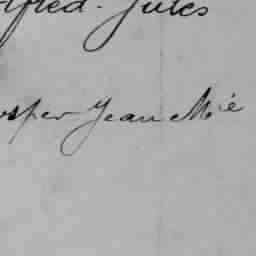 Alfred. Jules
osper Jean Mié